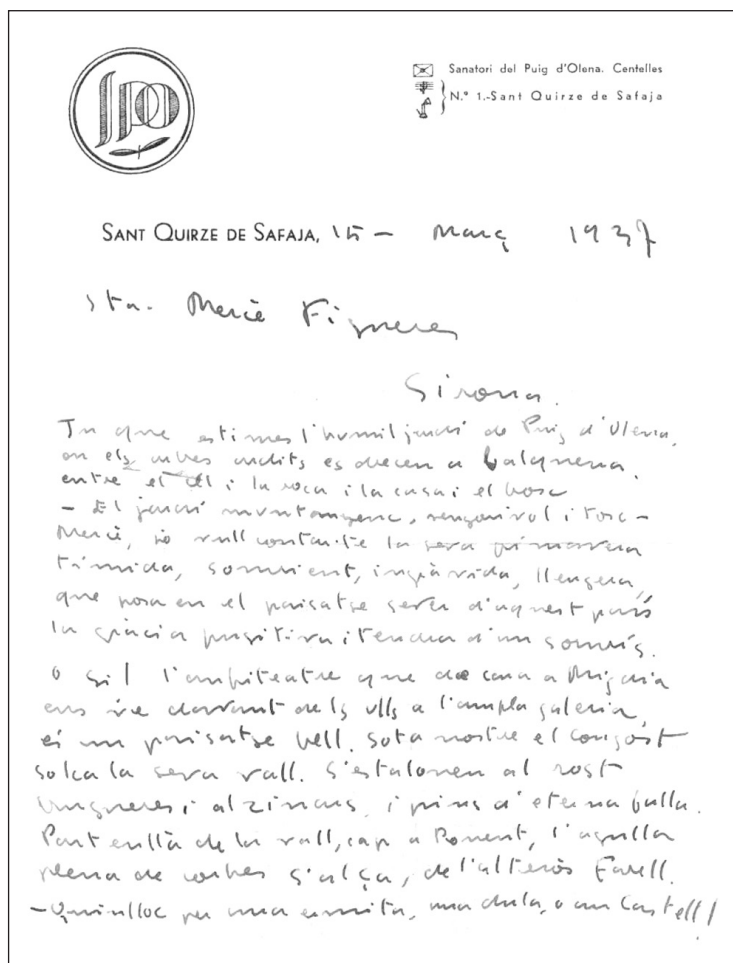 SPO
Sanatori del Puig d'Olena. Centelles
N.º 1.-Sant Quirze de Safaja
SANT QUIRZE DE SAFAJA, 15 - Març 1937
Sta. Mercè Figueres
Girona.
Tu que estimes l'humil jardí de Puig d'Olena,
on els arbres ardits es drecen a balquena,
entre el cel i la roca i la casa i el bosc
- El jardí muntanyenc, renyinvol i tosc -
Mercè, jo vull contar-te la seva primavera
tímida, somrient, ingràvida, lleugera,
que posa en el paisatge sever d'aquest país
la gràcia fugitiva i tendra d'un somrís.
O si! l'amfiteatre que de cara a Migdia
ens ve davant dels ulls a l'ampla galeria,
és un paisatge bell. Sota nostre el congost
solca la seva vall. S'estalonen al rost
boigueres i alzinars, i pins d'eterna fulla.
Part enllà de la vall, cap a Ponent, l'agulla
plena de corbes s'alça, de l'alterós Farell.
- Quin lloc per una ermita, una dula, o un Castell!